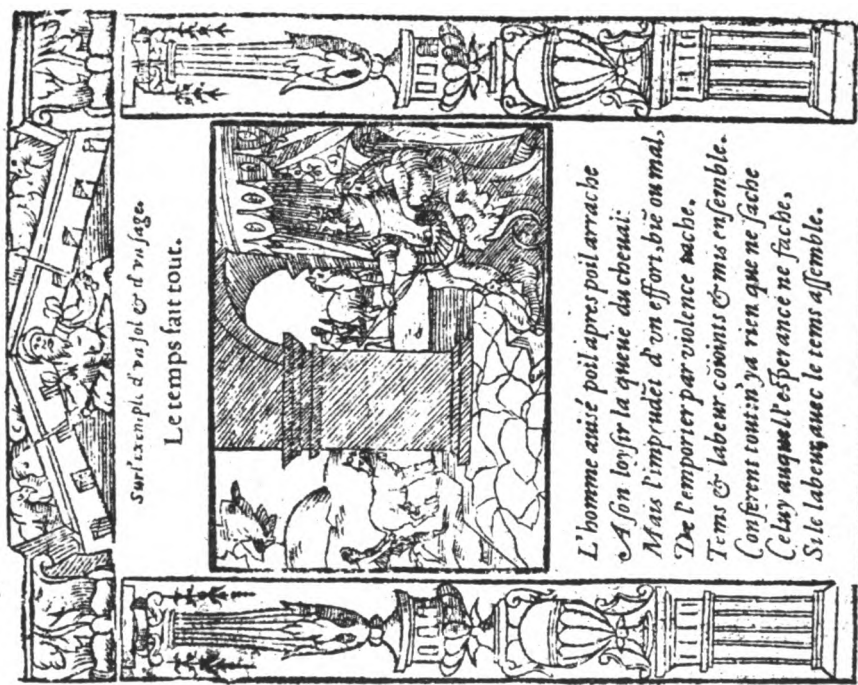 Sur l'exemple d'vn fol & d'vn sage.
Le temps fait tout.
L'homme auisé poil apres poil arrache
A son loysir la queuë du cheual:
Mais l'imprudēt d'vn effort, biē ou mal,
De l'emporter par violence tache.
Tems & labeur cōioints & mis ensemble.
Conferent tout: n'ya rien que ne sache
Celuy auquel l'esperance ne fache,
Si le labeur, auec le tems assemble.